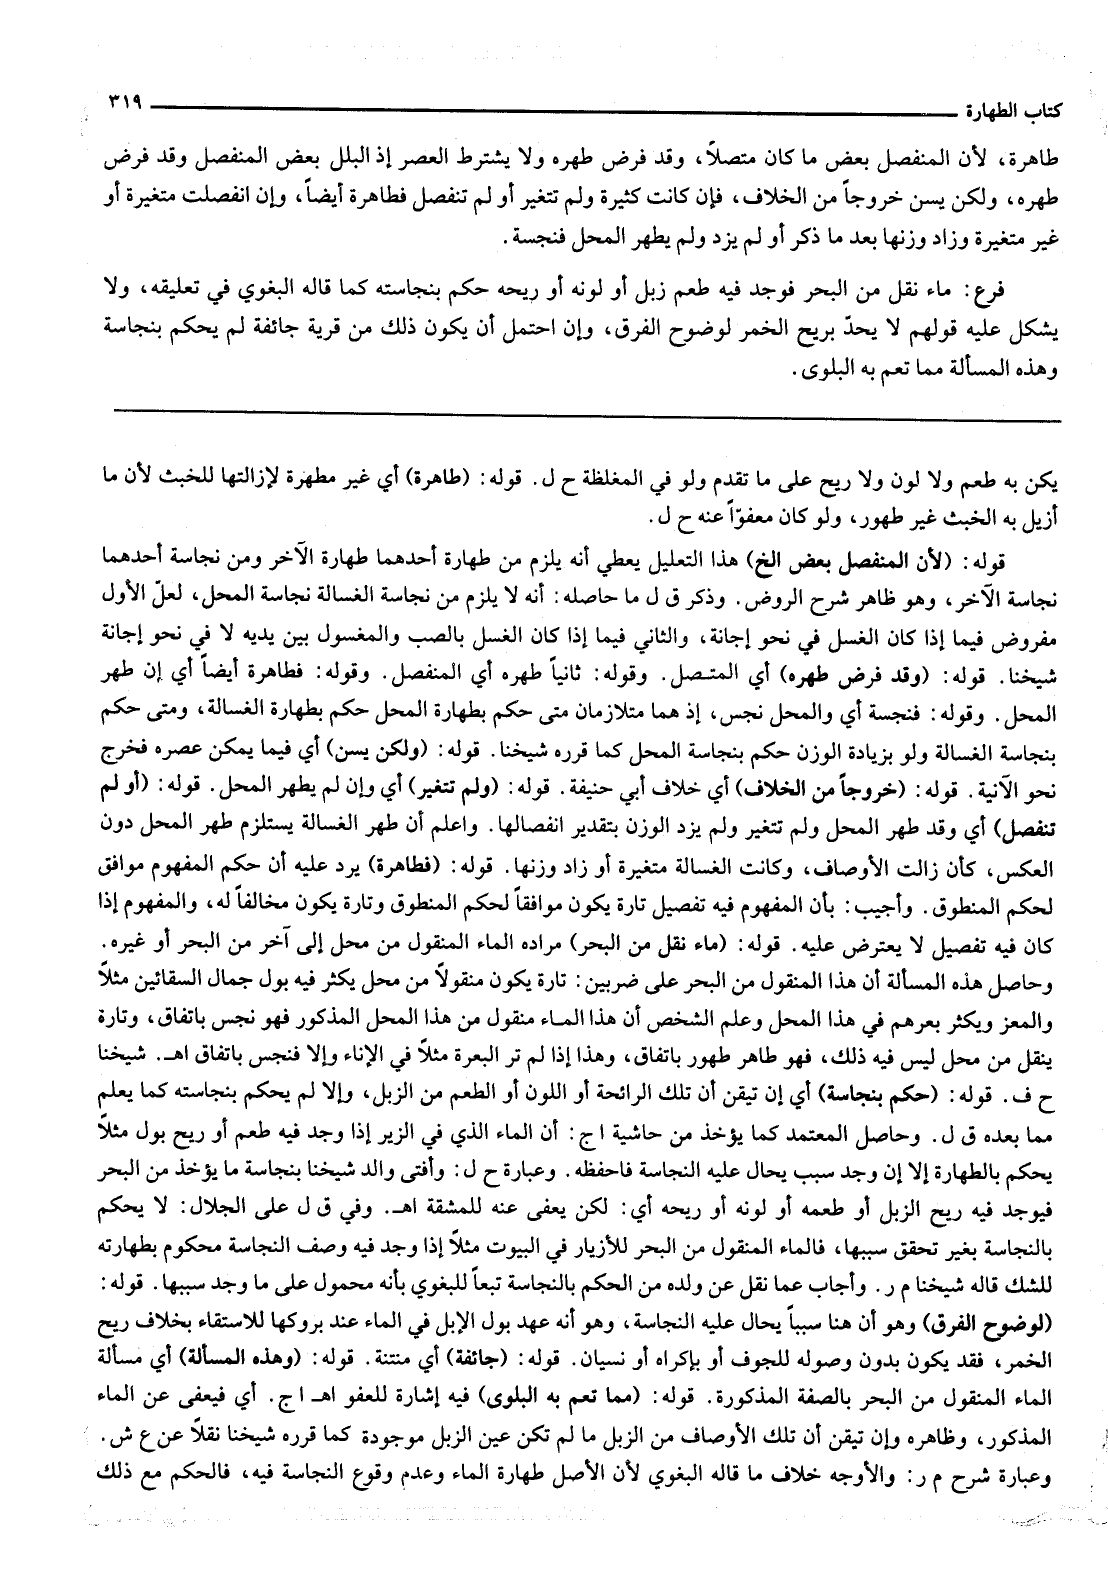 كتاب الطهارة ٣١٩
طاهرة، لأن المنفصل بعض ما كان متصلاً، وقد فرض طهره ولا يشترط العصر إذ البلل بعض المنفصل وقد فرض
طهره، ولكن يسن خروجاً من الخلاف، فإن كانت كثيرة ولم تتغير أو لم تنفصل فطاهرة أيضاً، وإن انفصلت متغيرة أو
غير متغيرة وزاد وزنها بعد ما ذكر أو لم يزد ولم يطهر المحل فنجسة.
فرع: ماء نقل من البحر فوجد فيه طعم زبل أو لونه أو ريحه حكم بنجاسته كما قاله البغوي في تعليقه، ولا
يشكل عليه قولهم لا يحدّ بريح الخمر لوضوح الفرق، وإن احتمل أن يكون ذلك من قرية جائفة لم يحكم بنجاسة
وهذه المسألة مما تعم به البلوى.
يكن به طعم ولا لون ولا ريح على ما تقدم ولو في المغلظة ح ل. قوله: (طاهرة) أي غير مطهرة لإزالتها للخبث لأن ما
أزيل به الخبث غير طهور، ولو كان معفوّاً عنه ح ل.
قوله: (لأن المنفصل بعض الخ) هذا التعليل يعطي أنه يلزم من طهارة أحدهما طهارة الآخر ومن نجاسة أحدهما
نجاسة الآخر، وهو ظاهر شرح الروض. وذكر ق ل ما حاصله: أنه لا يلزم من نجاسة الغسالة نجاسة المحل، لعلّ الأول
مفروض فيما إذا كان الغسل في نحو إجانة، والثاني فيما إذا كان الغسل بالصب والمغسول بين يديه لا في نحو إجانة
شيخنا. قوله: (وقد فرض طهره) أي المتـصل. وقوله: ثانياً طهره أي المنفصل. وقوله: فطاهرة أيضاً أي إن طهر
المحل. وقوله: فنجسة أي والمحل نجس، إذ هما متلازمان متى حكم بطهارة المحل حكم بطهارة الغسالة، ومتى حكم
بنجاسة الغسالة ولو بزيادة الوزن حكم بنجاسة المحل كما قرره شيخنا. قوله: (ولكن يسن) أي فيما يمكن عصره فخرج
نحو الآنية. قوله: (خروجاً من الخلاف) أي خلاف أبي حنيفة. قوله: (ولم تتغير) أي وإن لم يطهر المحل. قوله: (أو لم
تنفصل) أي وقد طهر المحل ولم تتغير ولم يزد الوزن بتقدير انفصالها. واعلم أن طهر الغسالة يستلزم طهر المحل دون
العكس، كأن زالت الأوصاف، وكانت الغسالة متغيرة أو زاد وزنها. قوله: (فطاهرة) يرد عليه أن حكم المفهوم موافق
لحكم المنطوق. وأجيب: بأن المفهوم فيه تفصيل تارة يكون موافقاً لحكم المنطوق وتارة يكون مخالفاً له، والمفهوم إذا
كان فيه تفصيل لا يعترض عليه. قوله: (ماء نقل من البحر) مراده الماء المنقول من محل إلى آخر من البحر أو غيره.
وحاصل هذه المسألة أن هذا المنقول من البحر على ضربين: تارة يكون منقولاً من محل يكثر فيه بول جمال السقائين مثلاً
والمعز ويكثر بعرهم في هذا المحل وعلم الشخص أن هذا المـاء منقول من هذا المحل المذكور فهو نجس باتفاق، وتارة
ينقل من محل ليس فيه ذلك، فهو طاهر طهور باتفاق، وهذا إذا لم تر البعرة مثلاً في الإناء وإلا فنجس باتفاق اهـ. شيخنا
ح ف. قوله: (حكم بنجاسة) أي إن تيقن أن تلك الرائحة أو اللون أو الطعم من الزبل، وإلا لم يحكم بنجاسته كما يعلم
مما بعده ق ل. وحاصل المعتمد كما يؤخذ من حاشية ا ج: أن الماء الذي في الزير إذا وجد فيه طعم أو ريح بول مثلاً
يحكم بالطهارة إلا إن وجد سبب يحال عليه النجاسة فاحفظه. وعبارة ح ل: وأفتى والد شيخنا بنجاسة ما يؤخذ من البحر
فيوجد فيه ريح الزبل أو طعمه أو لونه أو ريحه أي: لكن يعفى عنه للمشقة اهـ. وفي ق ل على الجلال: لا يحكم
بالنجاسة بغير تحقق سببها، فالماء المنقول من البحر للأزيار في البيوت مثلاً إذا وجد فيه وصف النجاسة محكوم بطهارته
للشك قاله شيخنا م ر. وأجاب عما نقل عن ولده من الحكم بالنجاسة تبعاً للبغوي بأنه محمول على ما وجد سببها. قوله:
(لوضوح الفرق) وهو أن هنا سبباً يحال عليه النجاسة، وهو أنه عهد بول الإبل في الماء عند بروكها للاستقاء بخلاف ريح
الخمر، فقد يكون بدون وصوله للجوف أو بإكراه أو نسيان. قوله: (جائفة) أي منتنة. قوله: (وهذه المسألة) أي مسألة
الماء المنقول من البحر بالصفة المذكورة. قوله: (مما تعم به البلوى) فيه إشارة للعفو اهـ ا ج. أي فيعفى عن الماء
المذكور، وظاهره وإن تيقن أن تلك الأوصاف من الزبل ما لم تكن عين الزبل موجودة كما قرره شيخنا نقلاً عن ع ش.
وعبارة شرح م ر: والأوجه خلاف ما قاله البغوي لأن الأصل طهارة الماء وعدم وقوع النجاسة فيه، فالحكم مع ذلك